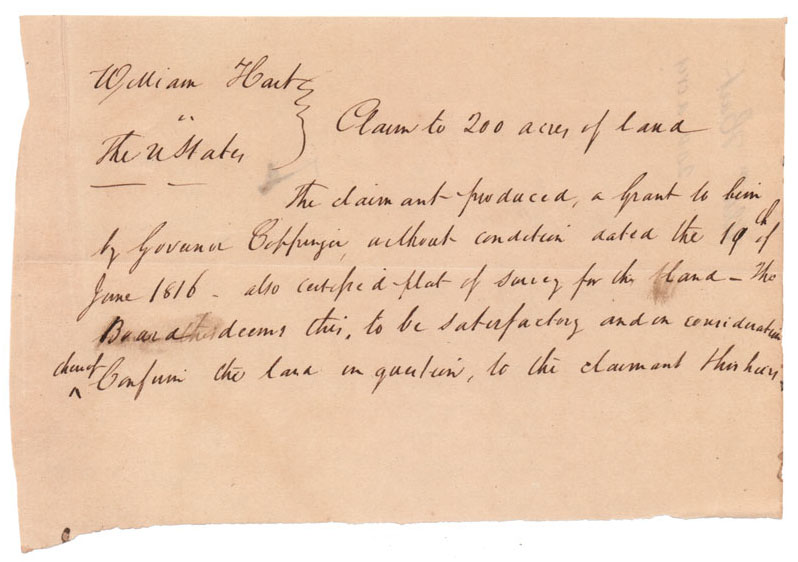 William Hart
"
The UStates
Claim to 200 acres of land
The claimant produced, a Grant to him
by Govenor Coppinger, without condition dated the 19th of
June 1816 - also certified plat of survey for the land - The
Board deems this, to be satisfactory and in consideration
thereof Confirm the land in question, to the claimant & his heirs